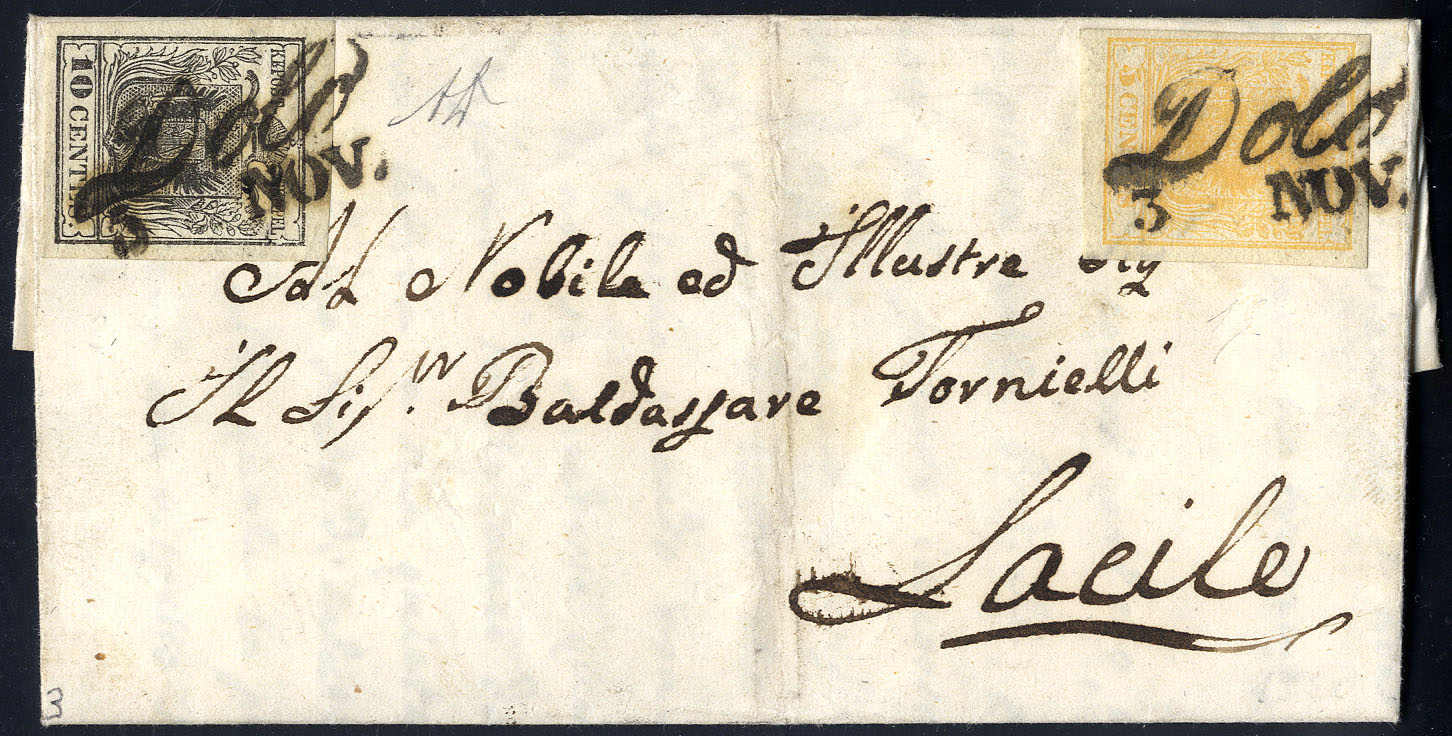 10 CENTES
KKPOST
Dolo
3 NOV.
5 CEN
Dolo
3 NOV.
Al Nobile ed Illustre Sig
Il Sigr. Baldassare Tornielli
Sacile
3